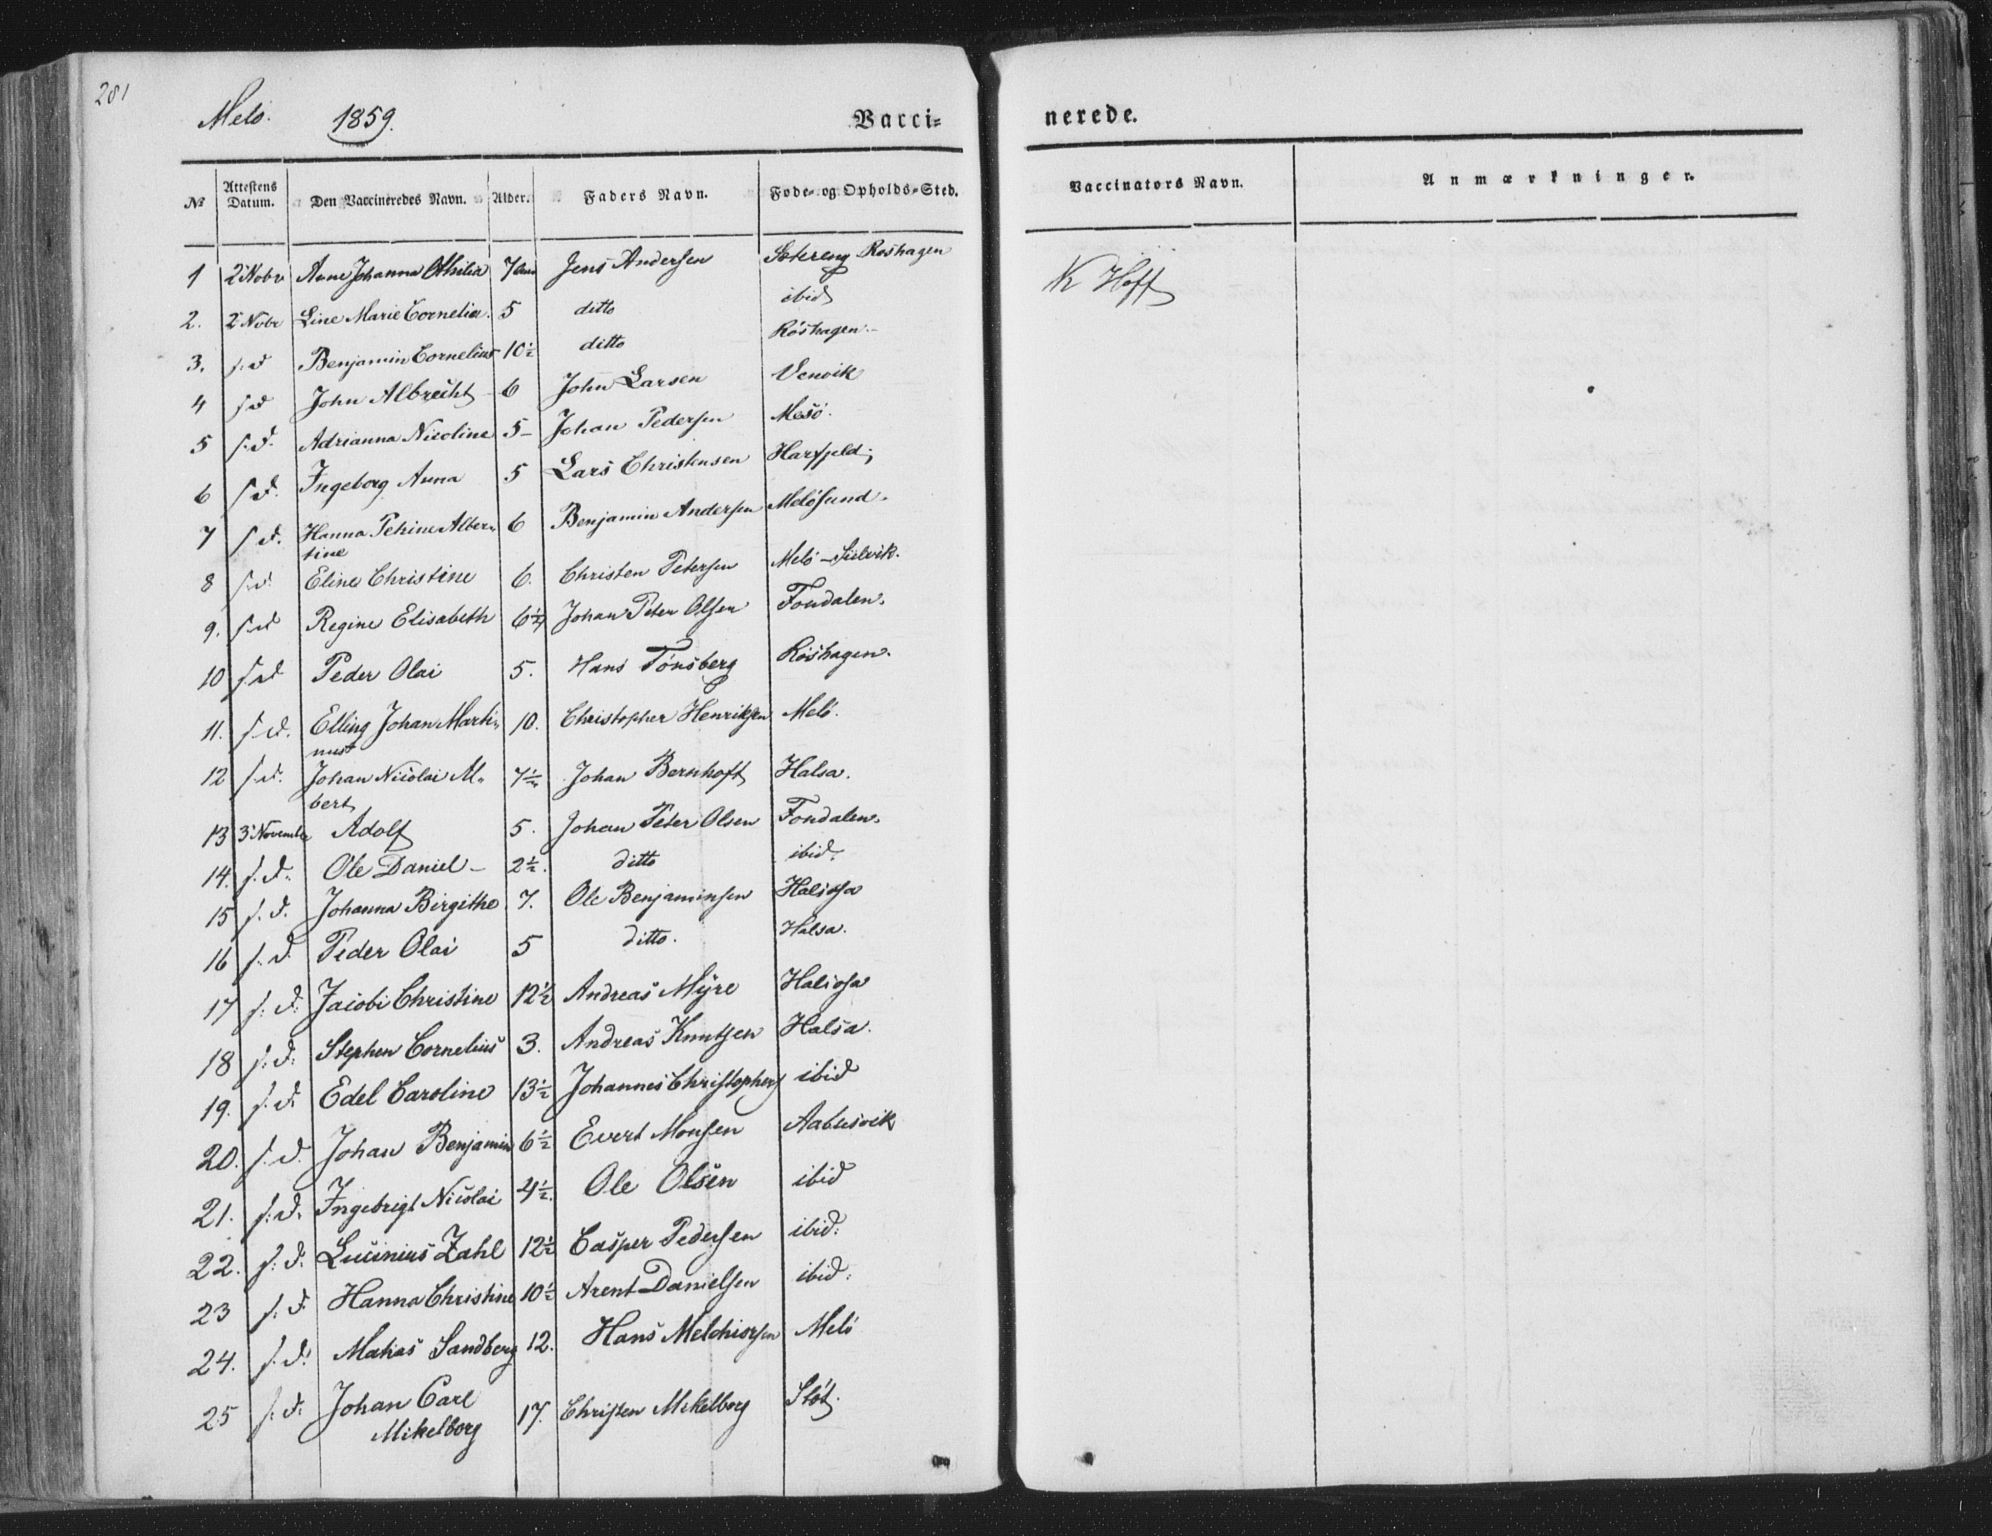 281
Melö. 1859. Vacci= nerede.
No Attestens Datum. Den Vaccineredes Navn. Alder. Faders Navn. Føde- og Opholds-Sted. Vaccinators Navn. Anmærkninger.
1 2 Nobr Ane Johanna Othilia 7 Jens Andersen Setereng Røshagen K Hoff
2. 2 Nobr Line Marie Cornelia. 5 ditto ibid
3. s:d Benjamin Cornelius 10½ ditto Röshagen
4 s:d John Albrecht 6 John Larsen Venvik
5 s:d. Adrianna Nicoline 5 Johan Pedersen Mesö.
6 s:d. Ingeborg Anna 5 Lars Christensen Harfjeld
7 s:d. Hanna Petrine Alber=
tine 6 Benjamin Andersen Melösund.
8 s:d. Eline Christine 6. Christen Petersen Melö
9. s:d Regine Elisabeth 6½ Johan Peter Olsen Fondalen.
10 s:d Peder Olai 5. Hans Tönsberg Röshagen.
11. s:d. Elling Johan Marti=
nus 10. Christopher Henriksen Melö.
12 s:d. Johan Nicolai
bert 7½ Johan Bernhoft Halsa.
13 3 November Adolf 5. Johan Peter Olsen Fondalen.
14. s:d. Ole Daniel 2½. ditto ibid.
15 s:d. Johanna Birgithe 7. Ole Benjaminsen Halsosa
16 s:d. Peder Olai 5 ditto. Halsa.
17 s:d. Jacobi Christine 12½ Andreas Myre Halsosa
18 s:d. Stephen Cornelius 3. Andreas Knutsen Halsa.
19. s:d. Edel Caroline 13½ Johannes Christophers ibid
20. s:d. Johan Benjamin 6½ Evert Monsen Aabelsvik
21. s:d. Ingebrigt Nicolai 4½. Ole Olsen ibid
22. s:d. Lucinius Zahl 12½ Casper Pedersen ibid:
23 s:d. Hanna Christine 10½ Arent Danielsen ibid:
24. s:d. Mathias Sandberg 12. Hans Melchiorsen Melö
25 s:d. Johan Carl
Mikelborg 17. Christen Mikelborg Stöt.